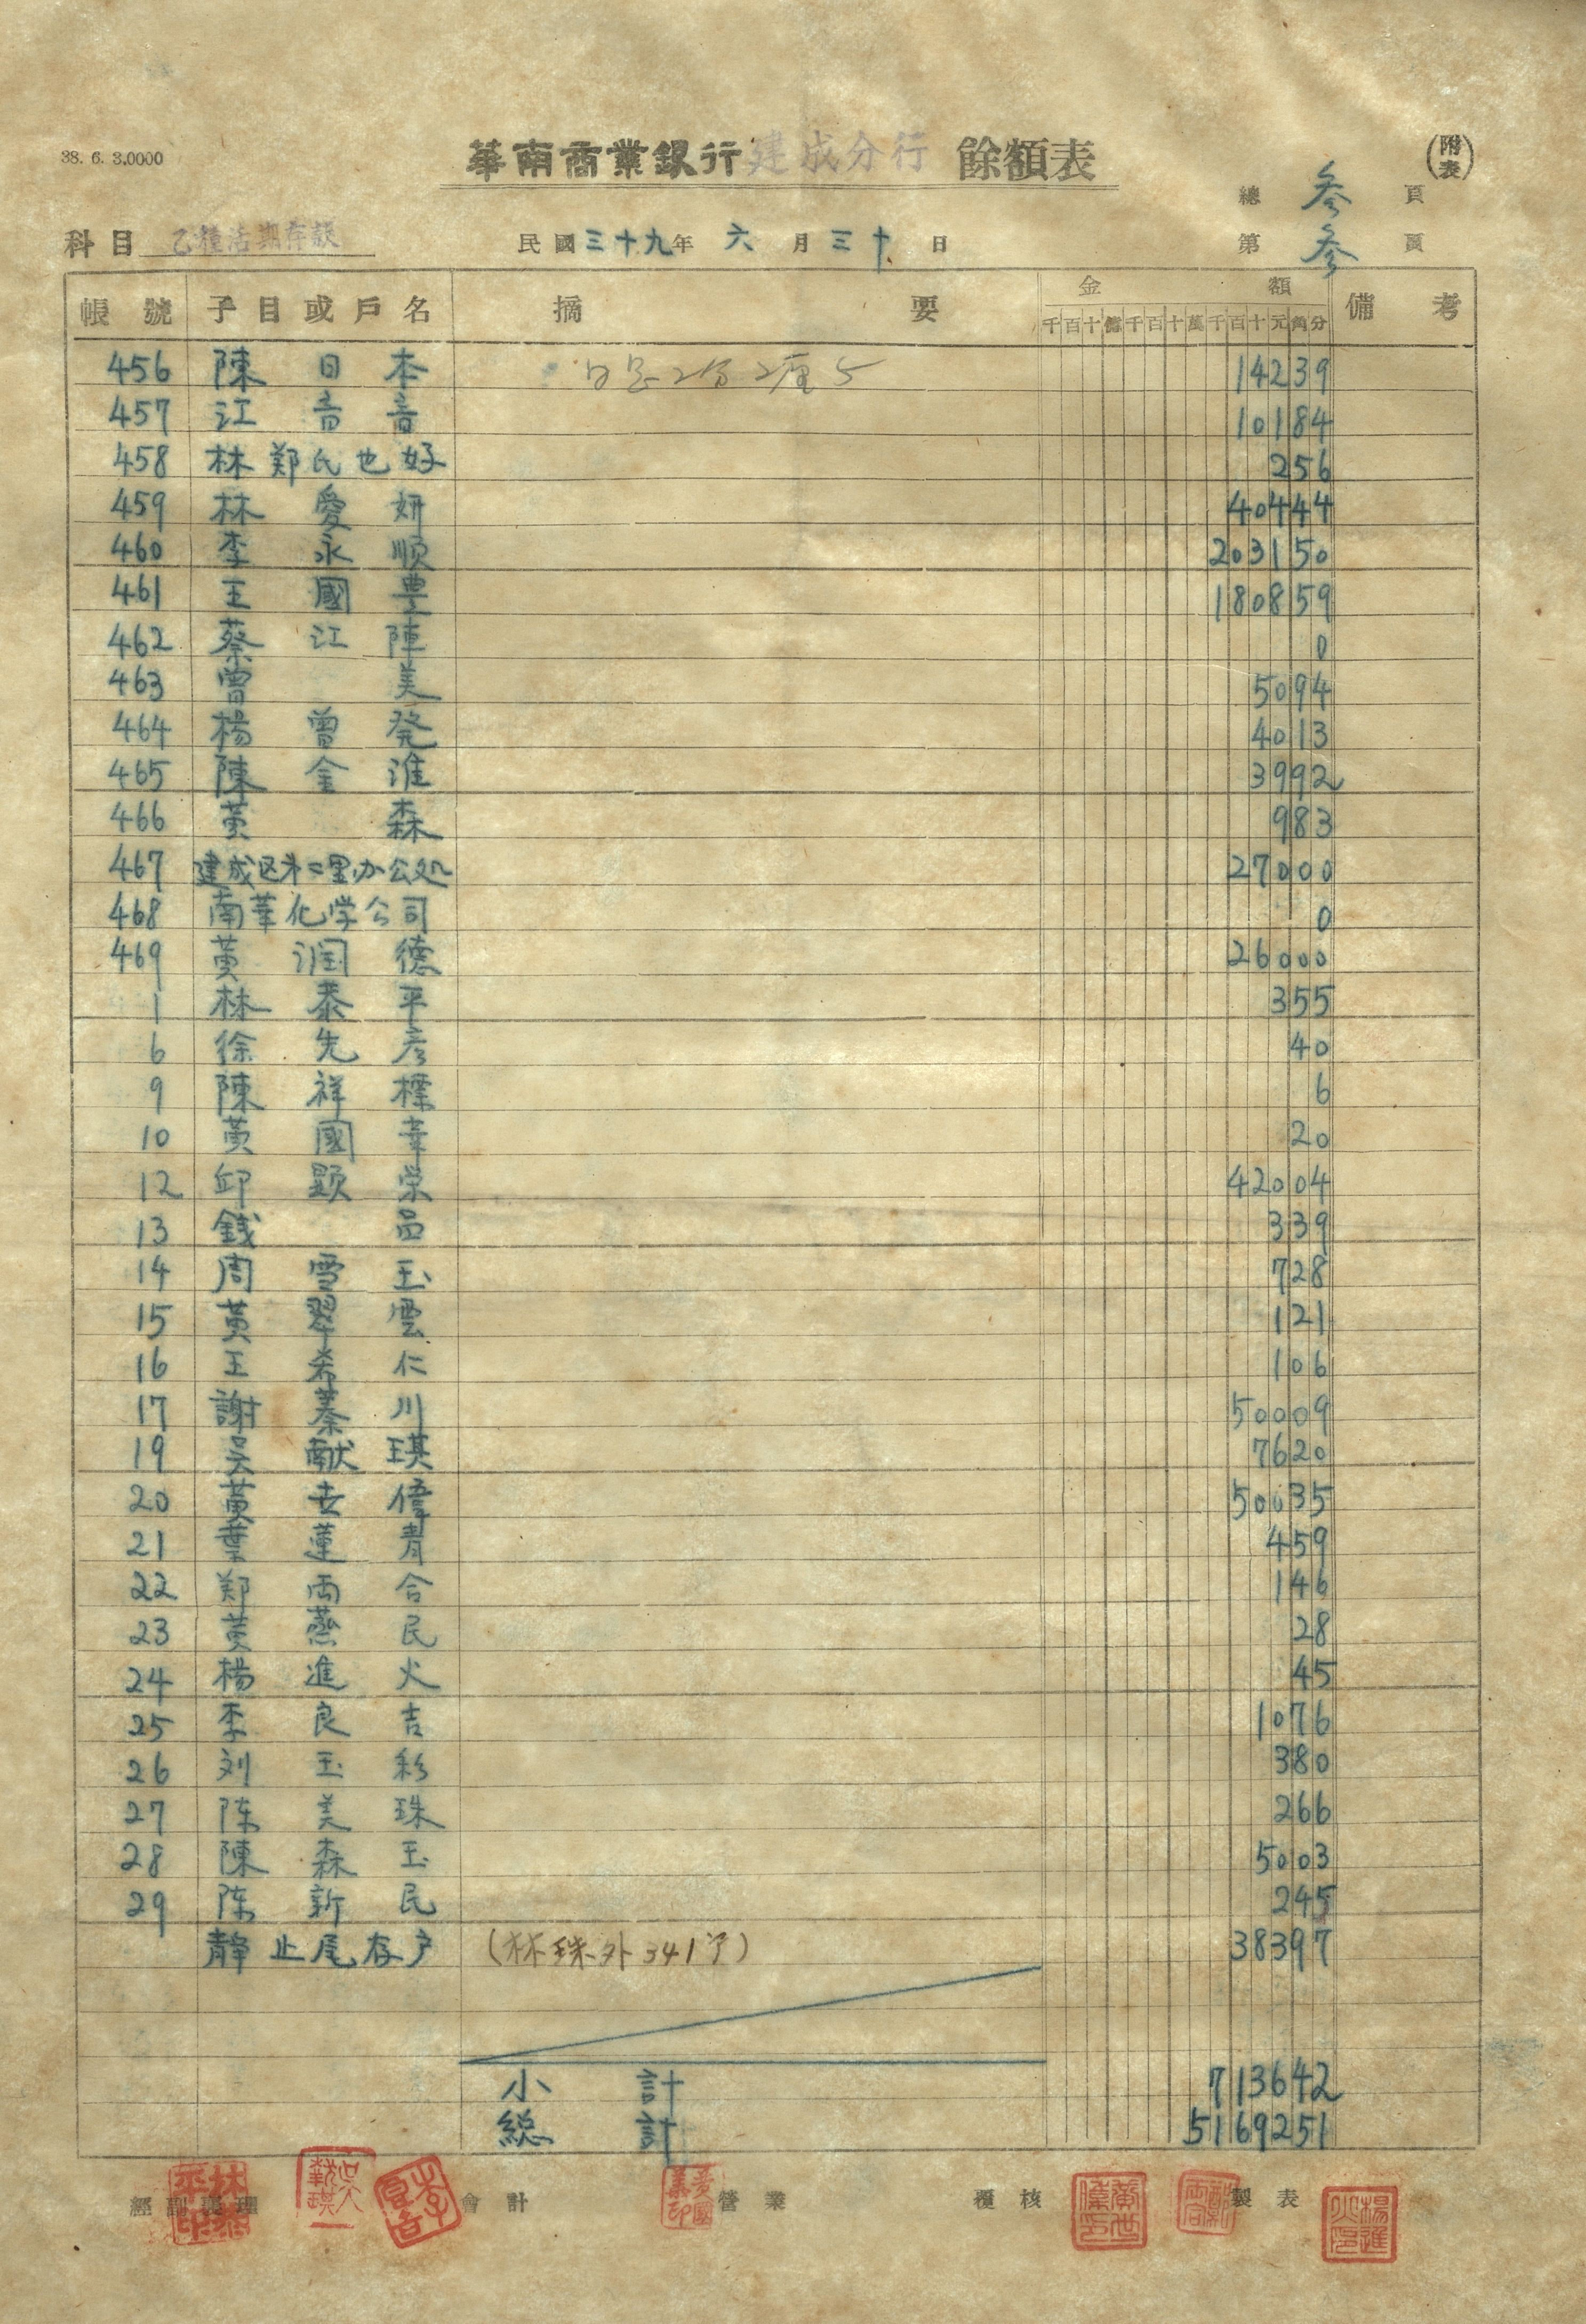 38. 6. 3.0000
華南商業銀行 建成分行 餘額表
(附表)
總 參 頁
科目 乙種活期存款 民國三十九年 六 月 三十 日 第 參 頁
帳號 子目或戶名 摘要 金額 備考
千百十億千百十萬千百十元角分
456 陳日本 日息2分2厘5 14239
457 江音音 10184
458 林鄭氏也好 256
459 林愛妍 40444
460 李永順 203150
461 王國豊 180859
462 蔡江陣 0
463 曾美 5094
464 楊曾発 4013
465 陳金淮 3992
466 黃森 983
467 建成区才二里办公处 27000
468 南華化学公司 0
469 黃潤德 26000
1 林泰平 355
6 徐先彦 40
9 陳祥標 6
10 黃國韋 20
12 邱顕栄 42004
13 銭昌 339
14 周雪玉 728
15 黃翠雲 121
16 王希仁 106
17 謝蓁川 50009
19 吴献琪 7620
20 黃世偉 50635
21 葉蓮青 459
22 郑雨合 146
23 黃燕民 28
24 楊進火 45
25 李良吉 1076
26 刘玉彩 380
27 陈美珠 266
28 陳森玉 5003
29 陈新民 245
靜止尾存戸 (林珠外341户) 38397
小計 713642
総計 5169251
經副襄理 會計 營業 覆核 製表